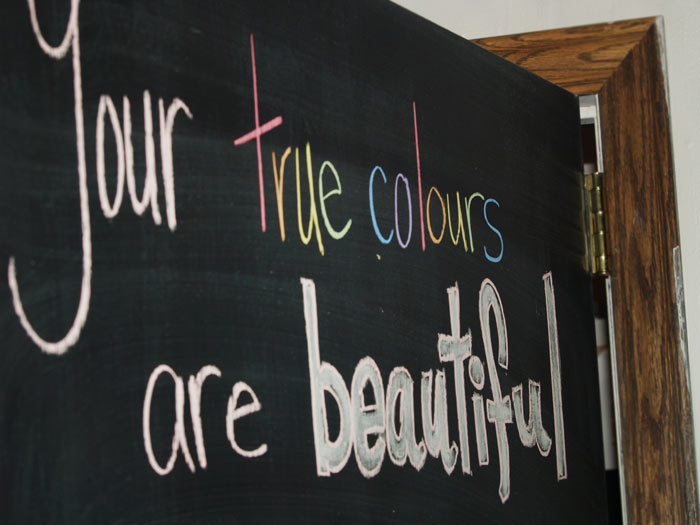 Your true colours
are beautiful